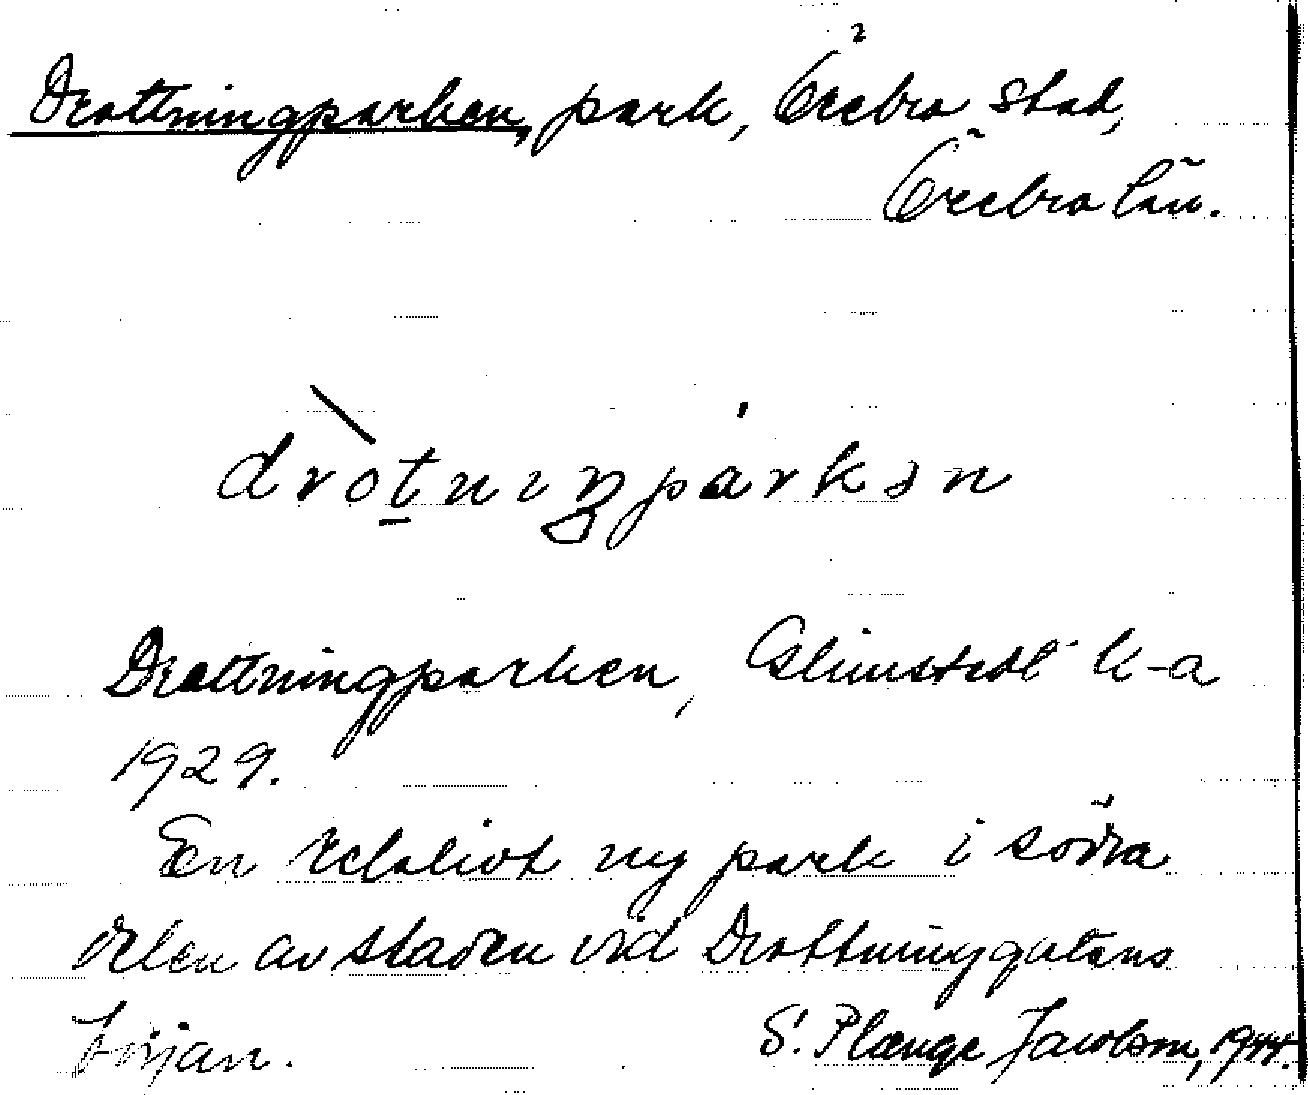 Drottningparken, park, Örebro stad,
Örebro län.
dròtniŋpárkən
Drottningparken, Glimstedt k-a
1929.
En relativt ny park i södra
delen av staden vid Drottninggatans
början.
S. Plænge Jacobson, 1944.